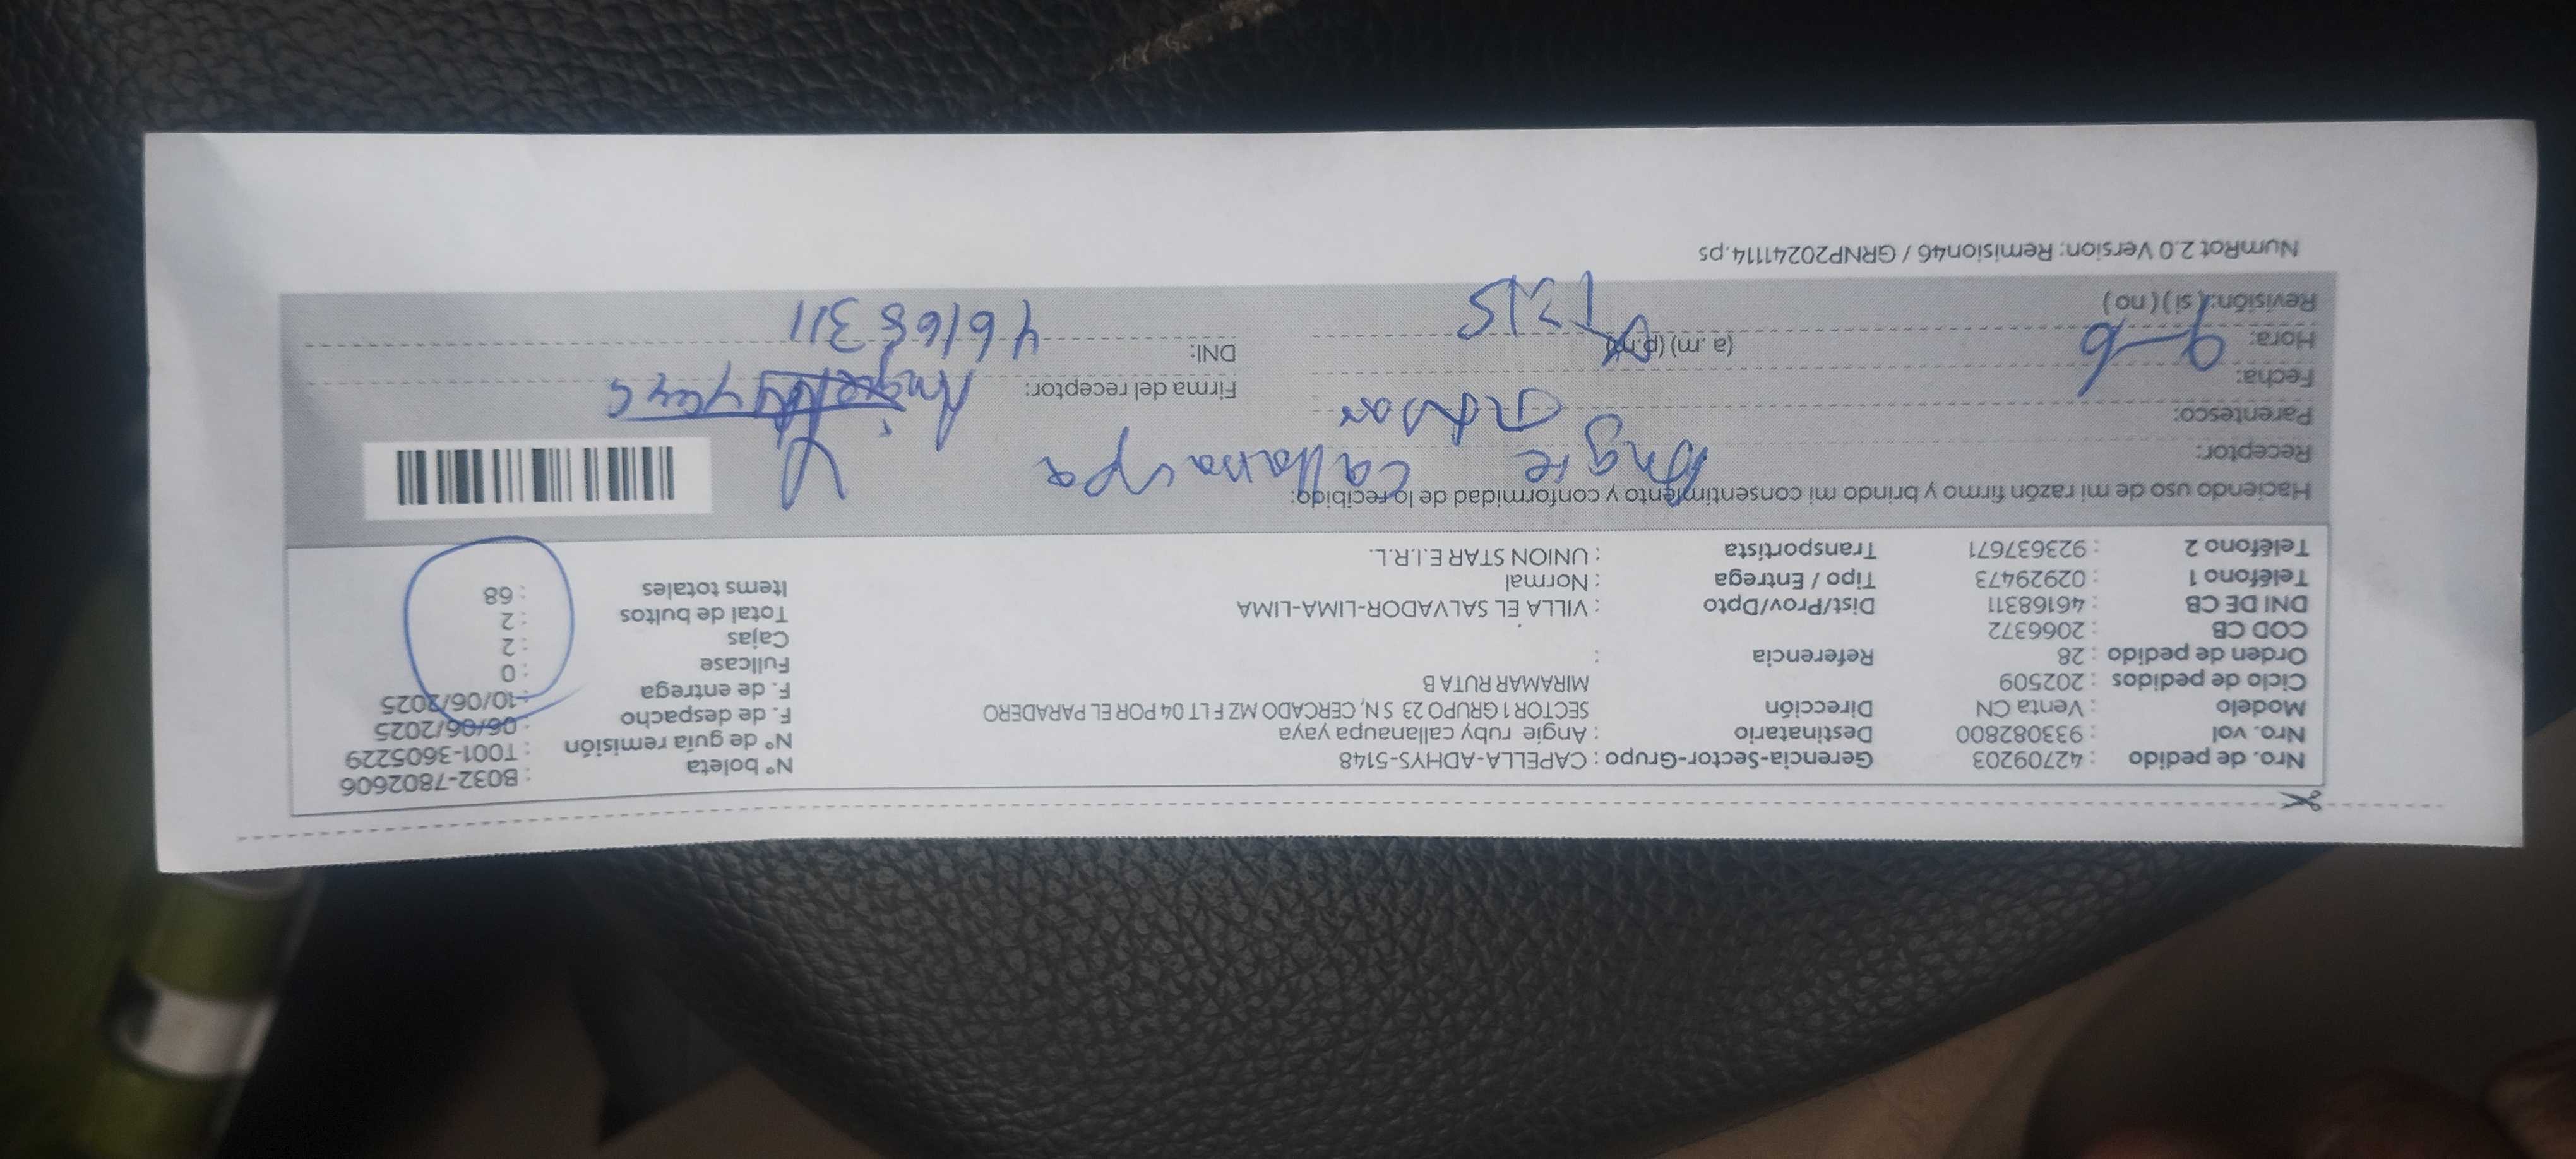 Nro. de pedido : 42709203 Gerencia-Sector-Grupo : CAPELLA-ADHYS-5148 N° boleta : B032-7802606
Nro. vol : 933082800 Destinatario : Angie ruby callanaupa yaya N° de guía remisión : T001-3605229
Modelo : Venta CN Dirección SECTOR 1 GRUPO 23 S N, CERCADO MZ F LT 04 POR EL PARADERO F. de despacho : 06/06/2025
Ciclo de pedidos : 202509 MIRAMAR RUTA B F. de entrega : 10/06/2025
Orden de pedido : 28 Referencia : Fullcase : 0
COD CB : 2066372 Cajas : 2
DNI DE CB : 46168311 Dist/Prov/Dpto : VILLA EL SALVADOR-LIMA-LIMA Total de bultos : 2
Teléfono 1 : 02929473 Tipo / Entrega : Normal Items totales : 68
Teléfono 2 : 923637671 Transportista : UNION STAR E.I.R.L.
Haciendo uso de mi razón firmo y brindo mi consentimiento y conformidad de lo recibido:
Receptor: Angie callanaupa
Parentesco:
Fecha: 9-6 Firma del receptor:
Hora: (a .m) (p.m) 1315 DNI: 46168311
Revisión: ( si ) ( no )
NumRot 2.0 Version: Remision46 / GRNP20241114.ps